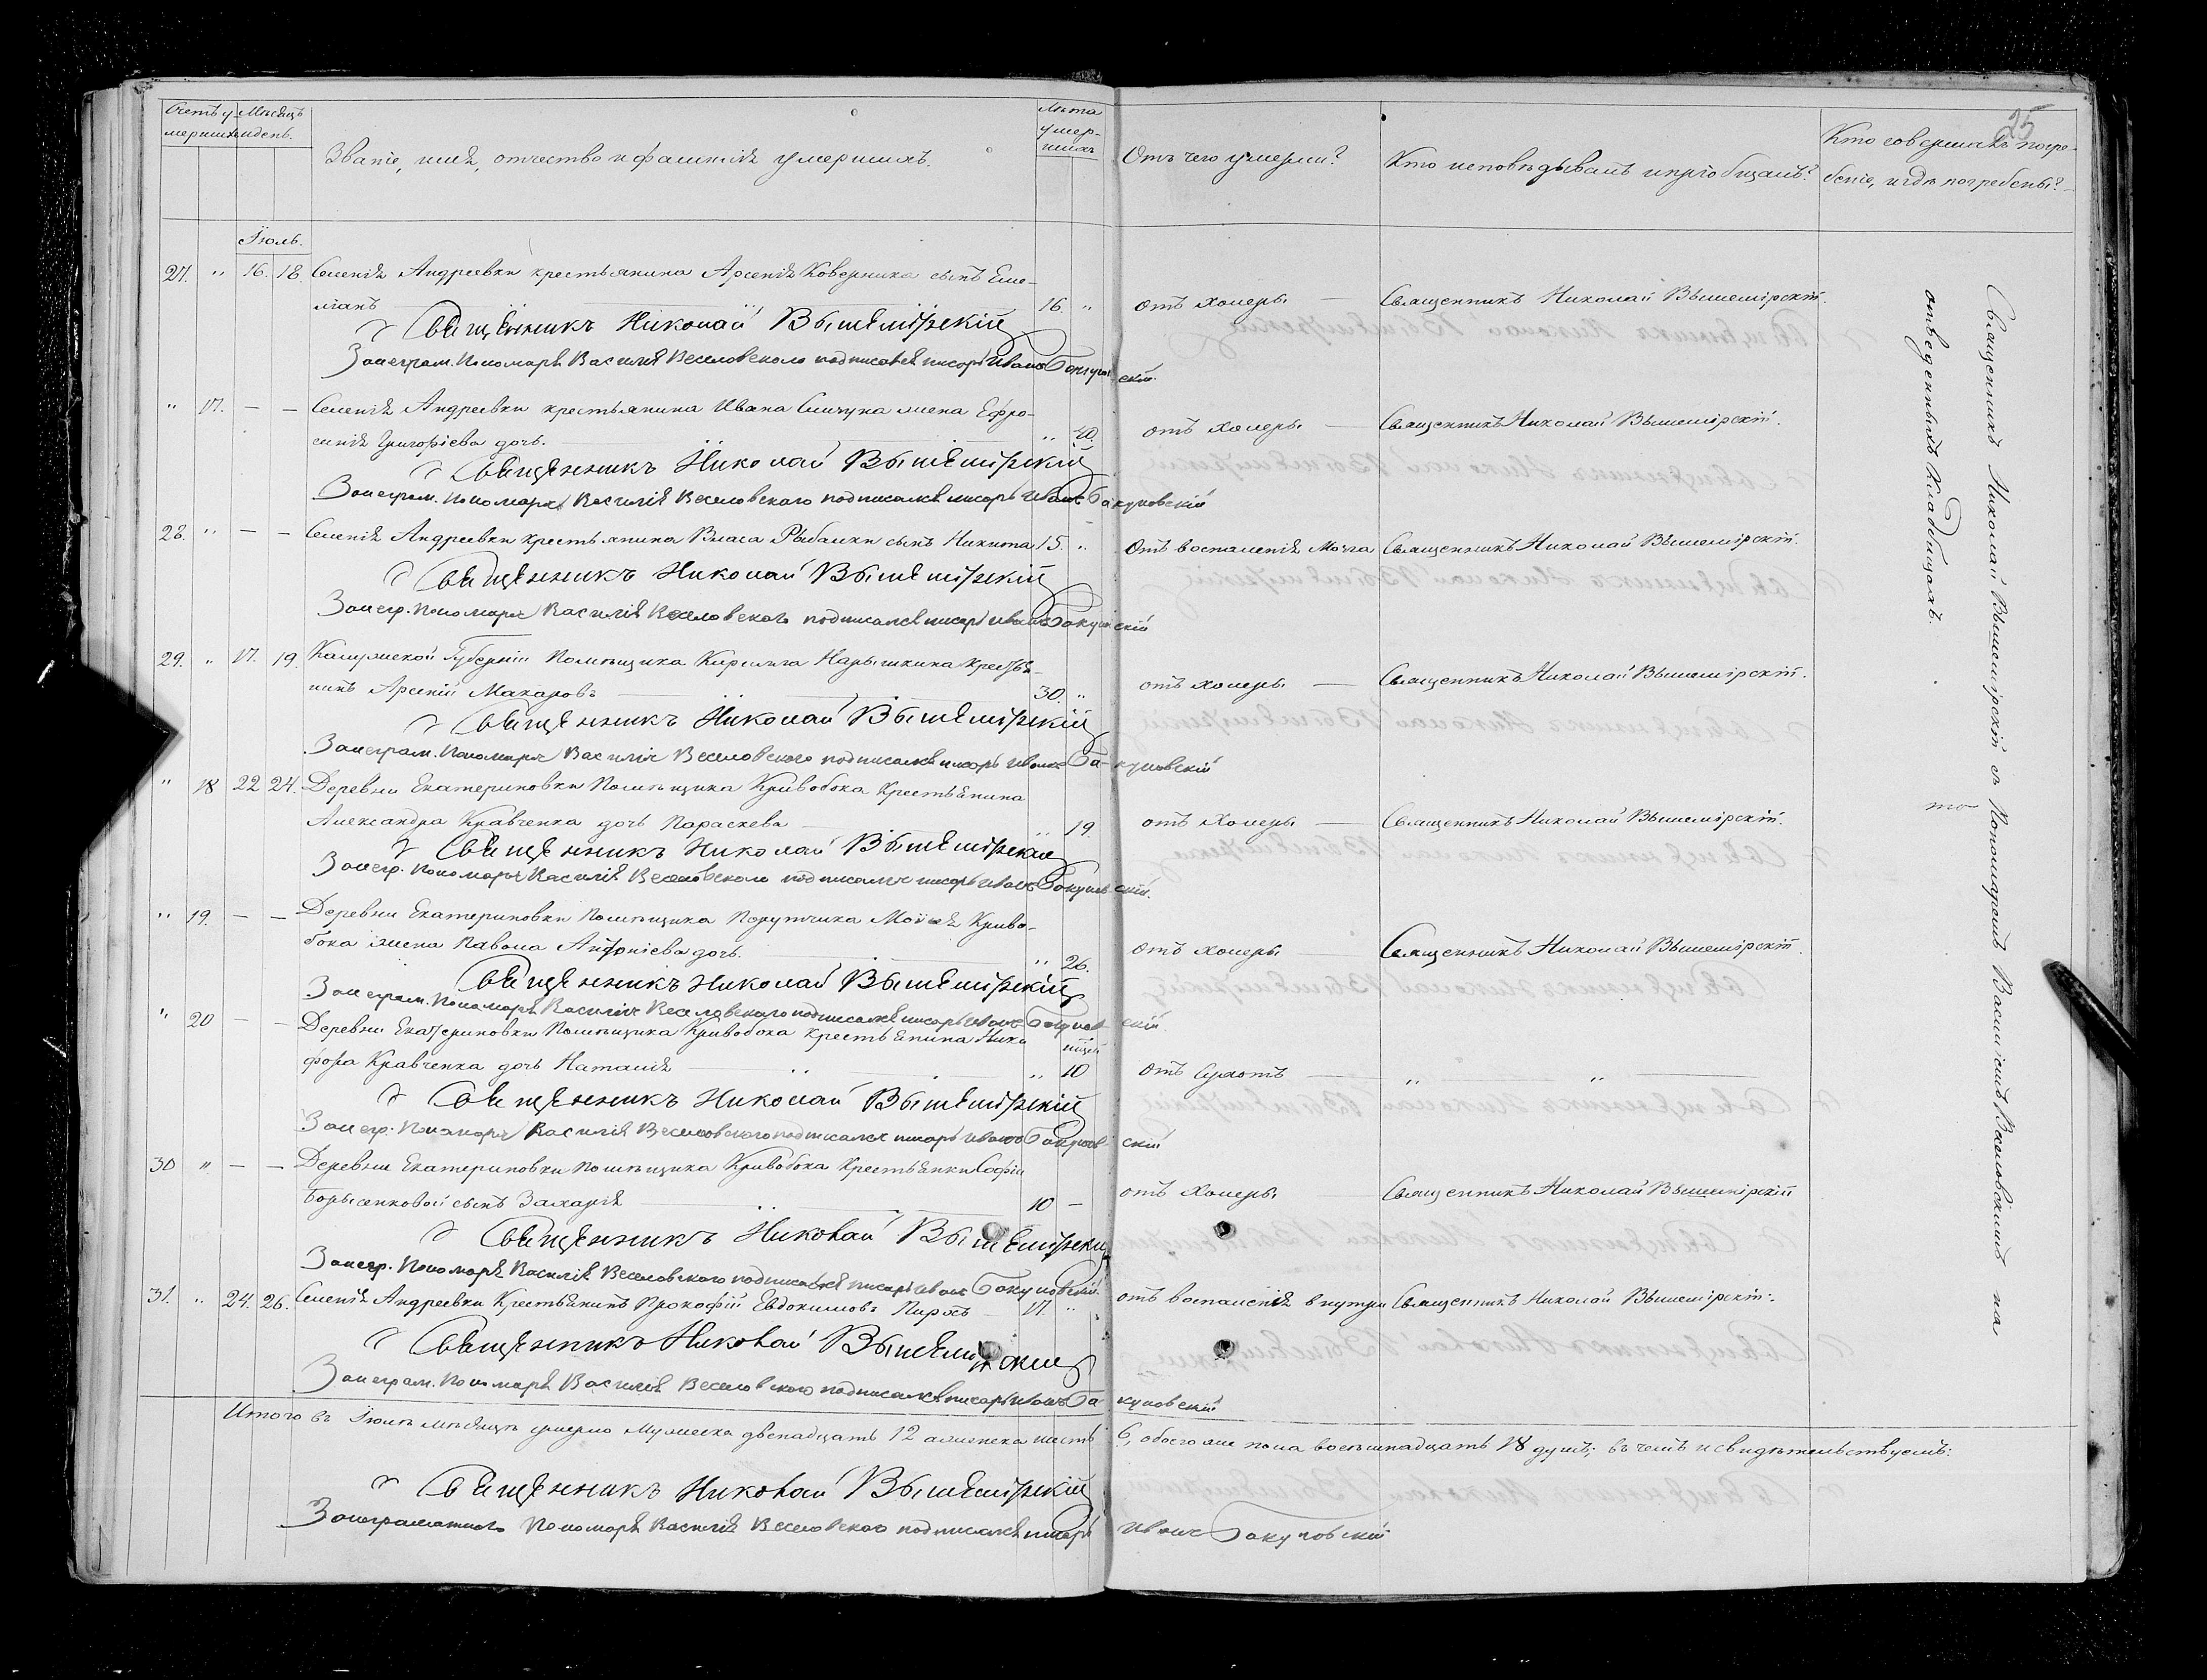 25
Счетъ у-
мершихъ
Мѣсяцъ
и день.
Званіе, имя, отчество и фамилія умершихъ.
Лѣта
умер-
шихъ
Отъ чего умерли?
Кто исповѣдывалъ и пріобщалъ?
Кто совершалъ погре-
беніе, и гдѣ погребены?
Іюль.
27. " 16. 18. Селенія Андреевки крестьянина Арсенія Коверника сынъ Еме-
ліанъ 16. " отъ холеры — Священникъ Николай Вышемірскій.
Священникъ Николай Вышемірскій
За неграм. Пономаря Василія Веселовскаго подписался писарь Иванъ Бакуновскій.
" 17. — — Селенія Андреевки крестьянина Ивана жена Ефро-
синія Григоріева дочь. " 40. отъ холеры — Священникъ Николай Вышемірскій.
Священникъ Николай Вышемірскій
За неграм. Пономаря Василія Веселовскаго подписался писарь Иванъ Бакуновскій
28. " — — Селенія Андреевки крестьянина Власа Рыбалки сынъ Никита 15. " Отъ воспаленія мозга Священникъ Николай Вышемірскій.
Священникъ Николай Вышемірскій
За негр. Пономаря Василія Веселовскаго подписался писарь Иванъ Бакуновскій
29. " 17. 19. Калужской Губерніи Помѣщика Кирилла Нарышкина крестья-
нинъ Арсеній Макаровъ 30. " отъ холеры — Священникъ Николай Вышемірскій.
Священникъ Николай Вышемірскій
За неграм. Пономаря Василія Веселовскаго подписался писарь Иванъ Бакуновскій
" 18 22 24. Деревни Екатериновки Помѣщика Кривобока Крестьянина
Александра Кравченка дочь Параскева " 19. отъ холеры — Священникъ Николай Вышемірскій.
Священникъ Николай Вышемірскій
За негр. Пономаря Василія Веселовскаго подписался писарь Иванъ Бакуновскій.
" 19. — — Деревни Екатериновки Помѣщика Порутчика Моисея Криво-
бока жена Павла Антоніева дочь. " 26. отъ холеры Священникъ Николай Вышемірскій.
Священникъ Николай Вышемірскій
За неграм. Пономаря Василія Веселовскаго подписался писарь Иванъ Бакуновскій
" 20 — — Деревни Екатериновки Помѣщика Кривобока крестьянина Ники-
фора Кравченка дочь Наталія " 10 отъ сухотъ — " — " —
Священникъ Николай Вышемірскій
За негр. Пономаря Василія Веселовскаго подписался писарь Иванъ Бакуновскій
30 " — — Деревни Екатериновки Помѣщика Кривобока Крестьянки Софіи
Борысенковой сынъ Захарія 10 — отъ холеры Священникъ Николай Вышемірскій
Священникъ Николай Вышемірскій
За негр. Пономаря Василія Веселовскаго подписался писарь Иванъ Бакуновскій.
31. " 24. 26. Селенія Андреевки Крестьянинъ Прокофій Евдокимовъ 17. " отъ воспаленія внутри Священникъ Николай Вышемірскій.
Священникъ Николай Вышемірскій
За неграм. Пономаря Василія Веселовскаго подписался писарь Иванъ Бакуновскій
Итого въ Іюлѣ мѣсяцѣ умерло мужеска двенадцать 12 а женска шесть 6, обоего же пола восемнадцать 18 душъ; въ чемъ и свидѣтельствуемъ:
Священникъ Николай Вышемірскій
За неграмотнаго Пономаря Василія Веселовскаго подписался писарь Иванъ Бакуновскій
Священникъ Николай Вышемірскій съ Пономаремъ Василіемъ Веселовскимъ на
отведенныхъ Кладбищахъ.